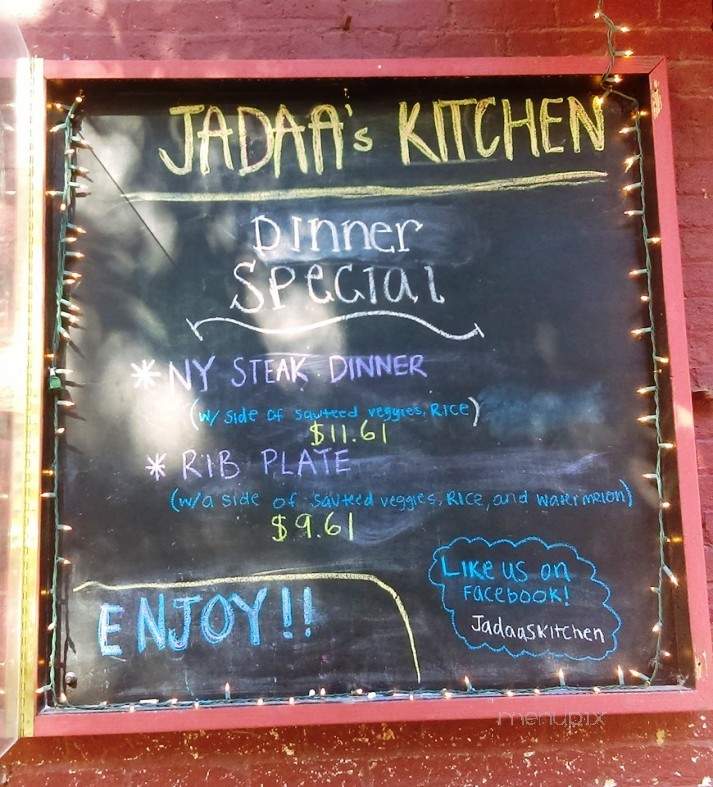 JADAA's KITCHEN
Dinner
Special
* NY STEAK DINNER
(w/ side of sauteed veggies, Rice)
$11.61
* RIB PLATE
(w/a side of sauteed veggies, Rice, and watermelon)
$9.61
ENJOY!!
Like us on
Facebook!
JadaasKitchen
menupix